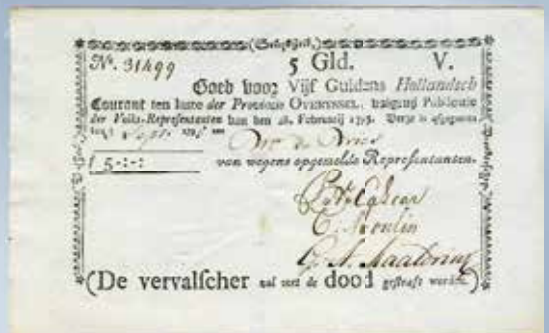 No. 31499 5 Gld. V.
Goed voor Vijf Guldens Hollandsch
Courant ten laste der Provincie OVERYSSEL, volgens Publicatie
der Volks-Representanten van den 28. Februarij 1795. Deeze is afgegeven
Sept. 1795 aan de Vries
f 5-:-: van wegens opgemelde Representanten.
C. Moulin
(De vervalscher zal met de dood gestraft worden.)